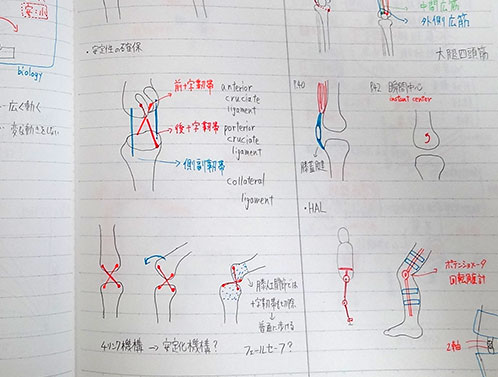 安
biology
広く動く
変な動きをしない
・安定性の確保
前十字靭帯
anterior
cruciate
ligament
後十字靭帯
porterior
cruciate
ligament
側副靭帯
collateral
ligament
膝人工関節では
十字靭帯切除
→普通に歩ける
4リンク機構 → 安定化機構?
フェールセーフ?
中間広筋
外側広筋
大腿四頭筋
P.40
膝蓋腱
P.42 瞬間中心
instant center
・HAL
ポテンショメータ
回転角度計
2軸